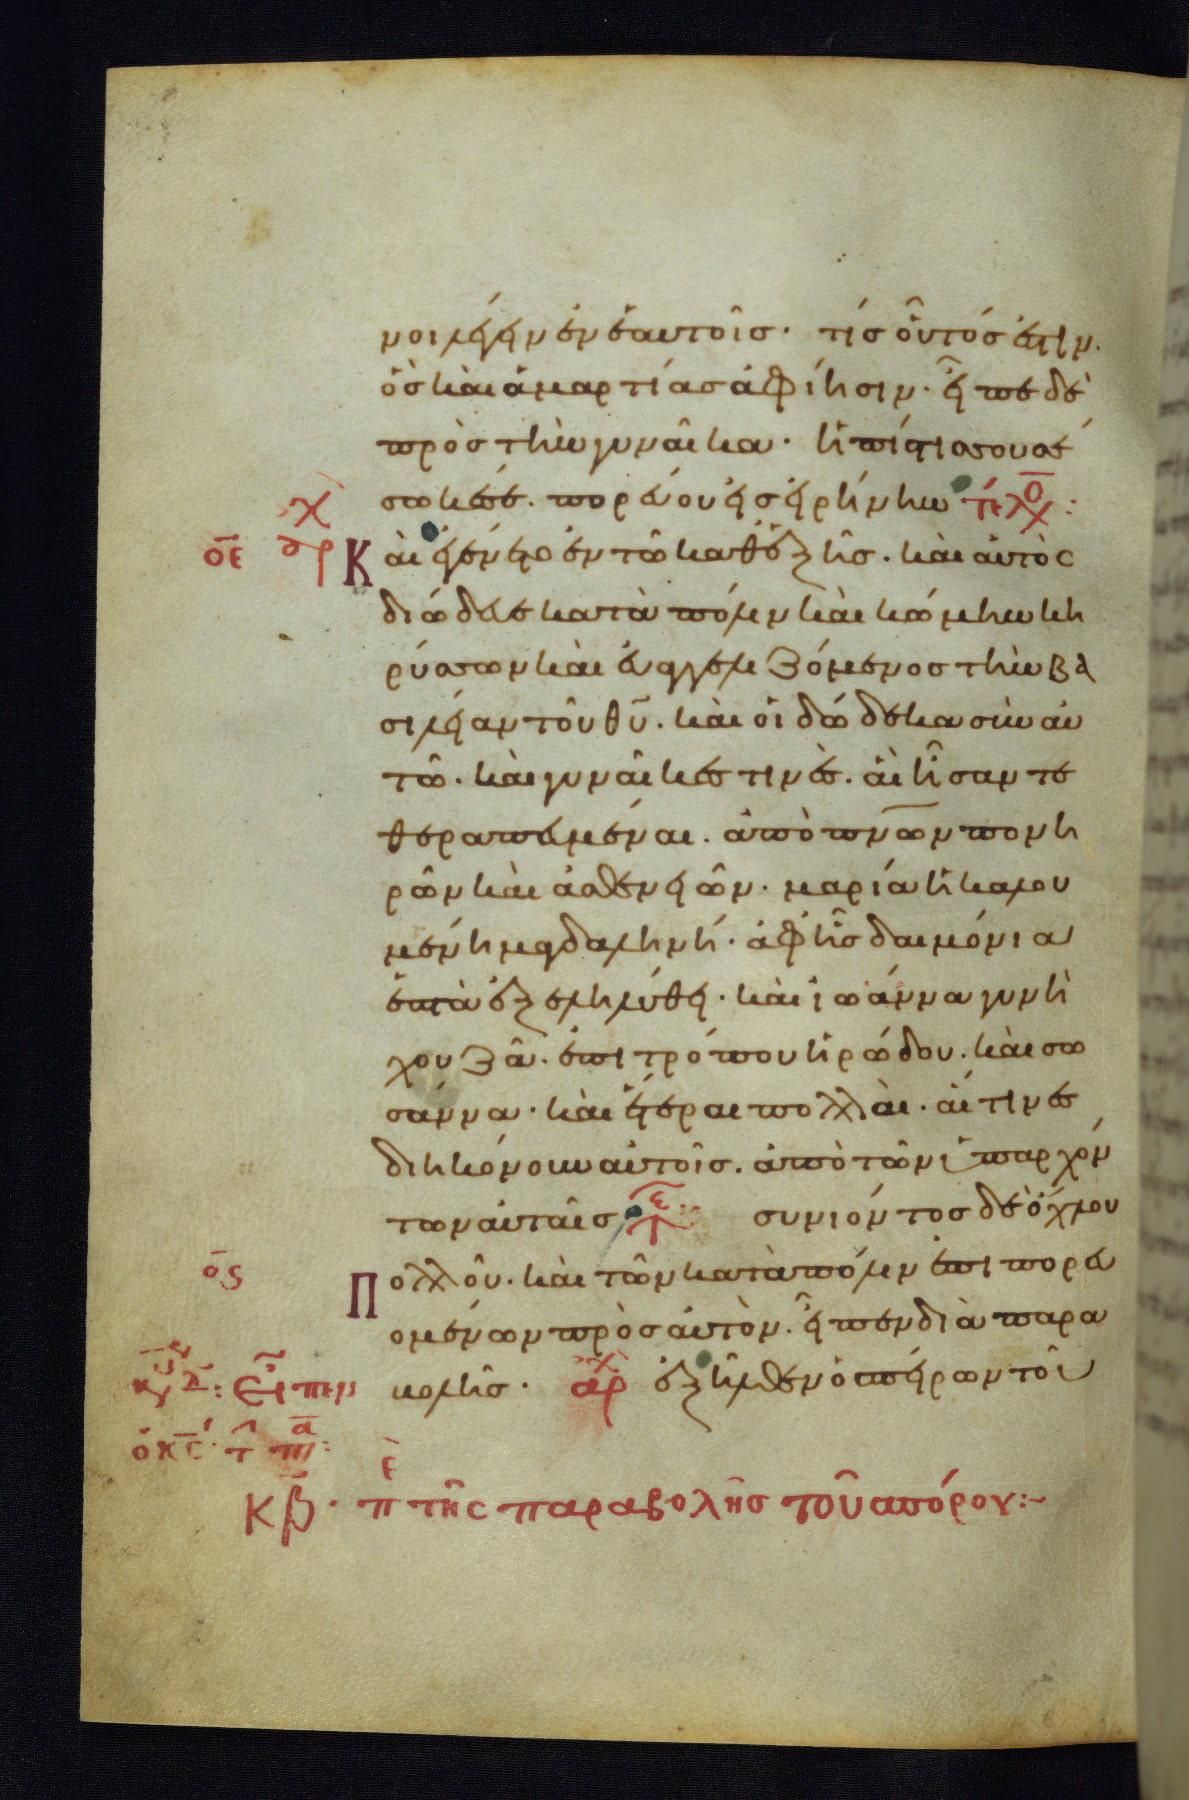 νοι λέγειν ἐν ἑαυτοῖς· τίς οὗτός ἐστιν.
ὃς καὶ ἁμαρτίας ἀφίησιν· εἶπε δὲ
πρὸς τὴν γυναῖκα· ἡ πίστις σου σέ
σωκέ σε. πορεύου εἰς εἰρήνην τέλος:
οε αρχ Καὶ ἐγένετο ἐν τῶ καθεξῆς. καὶ αὐτὸς
διώδευε κατὰ πόλιν καὶ κώμην κη
ρύσσων καὶ εὐαγγελιζόμενος τὴν βα
σιλείαν τοῦ θυ. καὶ οἱ δώδεκα σὺν αὐ
τῶ. καὶ γυναῖκες τινὲς. αἳ ἦσαν τε
θεραπευμέναι. ἀπὸ πνων πονη
ρῶν καὶ ἀσθενειῶν. μαρία ἡ καλου
μένη μαγδαληνή. ἀφ' ἧς δαιμόνια
ἑπτὰ ἐξεληλύθει. καὶ ἰωάννα γυνὴ
χουζᾶ. ἐπιτρόπου ἡρώδου. καὶ σω
σάννα. καὶ ἕτεραι πολλαὶ. αἵτινες
διηκόνουν αὐτοῖς. ἀπὸ τῶν ὑπαρχόν
των αὐταῖς τε συνιόντος δὲ ὄχλου
ος Πολλοῦ. καὶ τῶν κατὰ πόλιν ἐπιπορευ
ομένων πρὸς αὐτὸν. εἶπεν διὰ παρα
βολῆς. αρχ ἐξῆλθεν ὁ σπείρων τοῦ
εἶπεν
ο κς τ
κβ· πε τῆς παραβολῆς τοῦ σπόρου:~